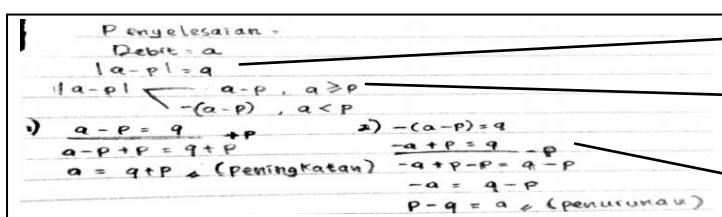 Penyelesaian =
Debit = a
|a-p| = q
|a-p| a-p , a ≥ p
-(a-p) , a < p
1) a - p = q +p
a-p+p = q+p
a = q+p (peningkatan)
2) -(a-p) = q
-a + p = q -p
-a+p-p = q-p
-a = q-p
p-q = a (penurunan)